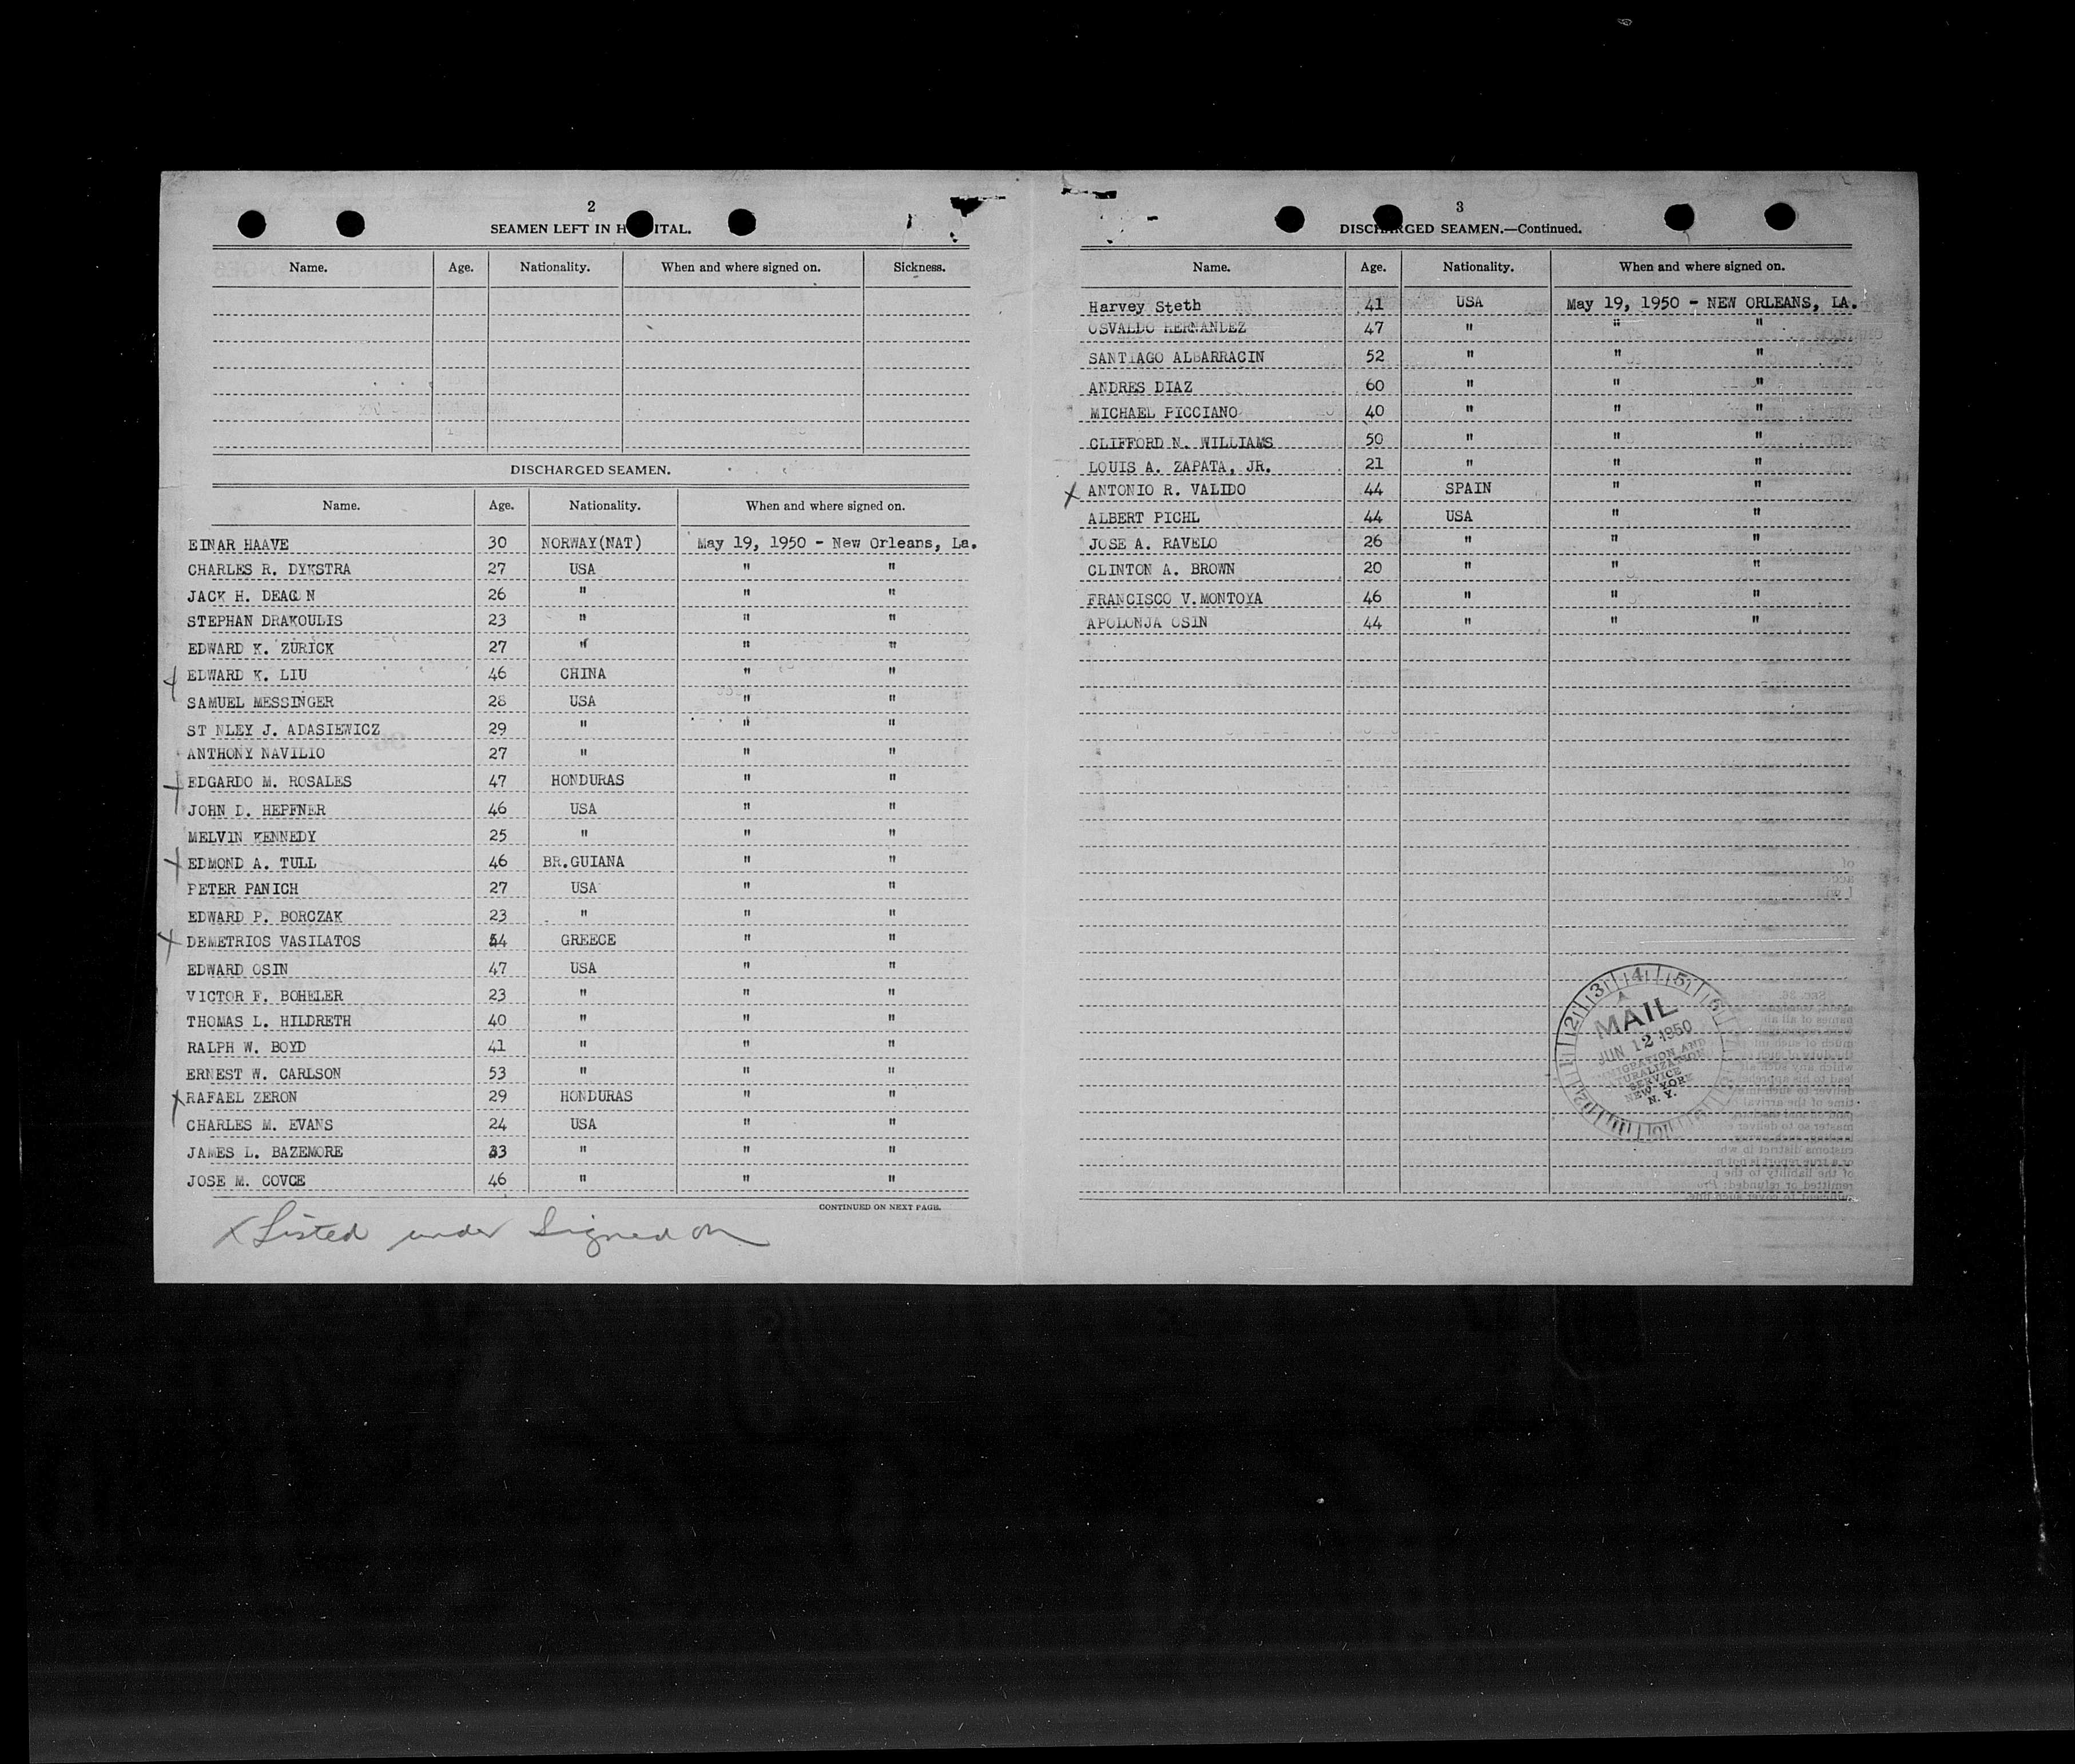 2
SEAMEN LEFT IN H ITAL.
Name. Age. Nationality. When and where signed on. Sickness.
DISCHARGED SEAMEN.
Name. Age. Nationality. When and where signed on.
EINAR HAAVE 30 NORWAY(NAT) May 19, 1950 - New Orleans, La.
CHARLES R. DYKSTRA 27 USA " "
JACK H. DEAG N 26 " " "
STEPHAN DRAKOULIS 23 " " "
EDWARD K. ZURICK 27 " " "
EDWARD K. LIU 46 CHINA " "
SAMUEL MESSINGER 28 USA " "
ST NLEY J. ADASIEWICZ 29 " " "
ANTHONY NAVILIO 27 " " "
EDGARDO M. ROSALES 47 HONDURAS " "
JOHN D. HEPFNER 46 USA " "
MELVIN KENNEDY 25 " " "
EDMOND A. TULL 46 BR.GUIANA " "
PETER PANICH 27 USA " "
EDWARD P. BORCZAK 23 " " "
DEMETRIOS VASILATOS 54 GREECE " "
EDWARD OSIN 47 USA " "
VICTOR F. BOHELER 23 " " "
THOMAS L. HILDRETH 40 " " "
RALPH W. BOYD 41 " " "
ERNEST W. CARLSON 53 " " "
X RAFAEL ZERON 29 HONDURAS " "
CHARLES M. EVANS 24 USA " "
JAMES L. BAZEMORE 33 " " "
JOSE M. COVCE 46 " " "
CONTINUED ON NEXT PAGE.
X Listed under Signed on
3
DISCHARGED SEAMEN.—Continued.
Name. Age. Nationality. When and where signed on.
Harvey Steth 41 USA May 19, 1950 - NEW ORLEANS, LA.
OSVALDO HERNANDEZ 47 " " "
SANTIAGO ALBARRACIN 52 " " "
ANDRES DIAZ 60 " " "
MICHAEL PICCIANO 40 " " "
CLIFFORD N. WILLIAMS 50 " " "
LOUIS A. ZAPATA, JR. 21 " " "
X ANTONIO R. VALIDO 44 SPAIN " "
ALBERT PICHL 44 USA " "
JOSE A. RAVELO 26 " " "
CLINTON A. BROWN 20 " " "
FRANCISCO V.MONTOYA 46 " " "
APOLONJA OSIN 44 " " "
MAIL
JUN 12 1950
IMMIGRATION AND
NATURALIZATION
SERVICE
NEW YORK
N. Y.